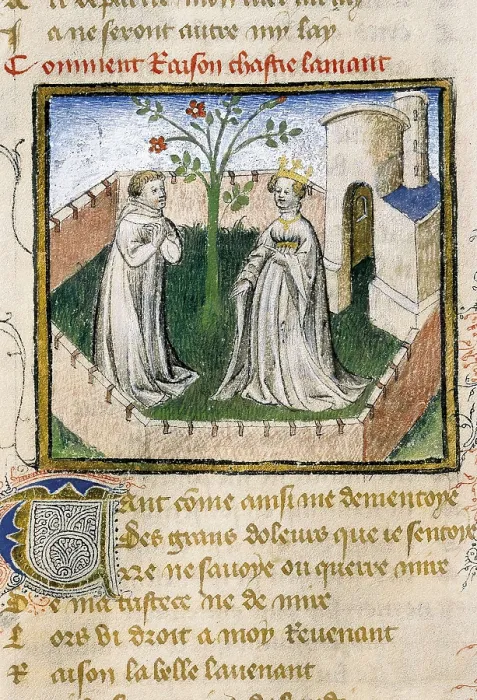 I a ne seront autre my lay
Comment Raison chastie lamant
Tant cõme ainsi me dementoye
Des grans doleurs que ie sentoye
Ne ne sauoye ou querre mire
De ma tristece ne de mire
Lors vi droit a moy Reuenant
Raison la belle lauenant